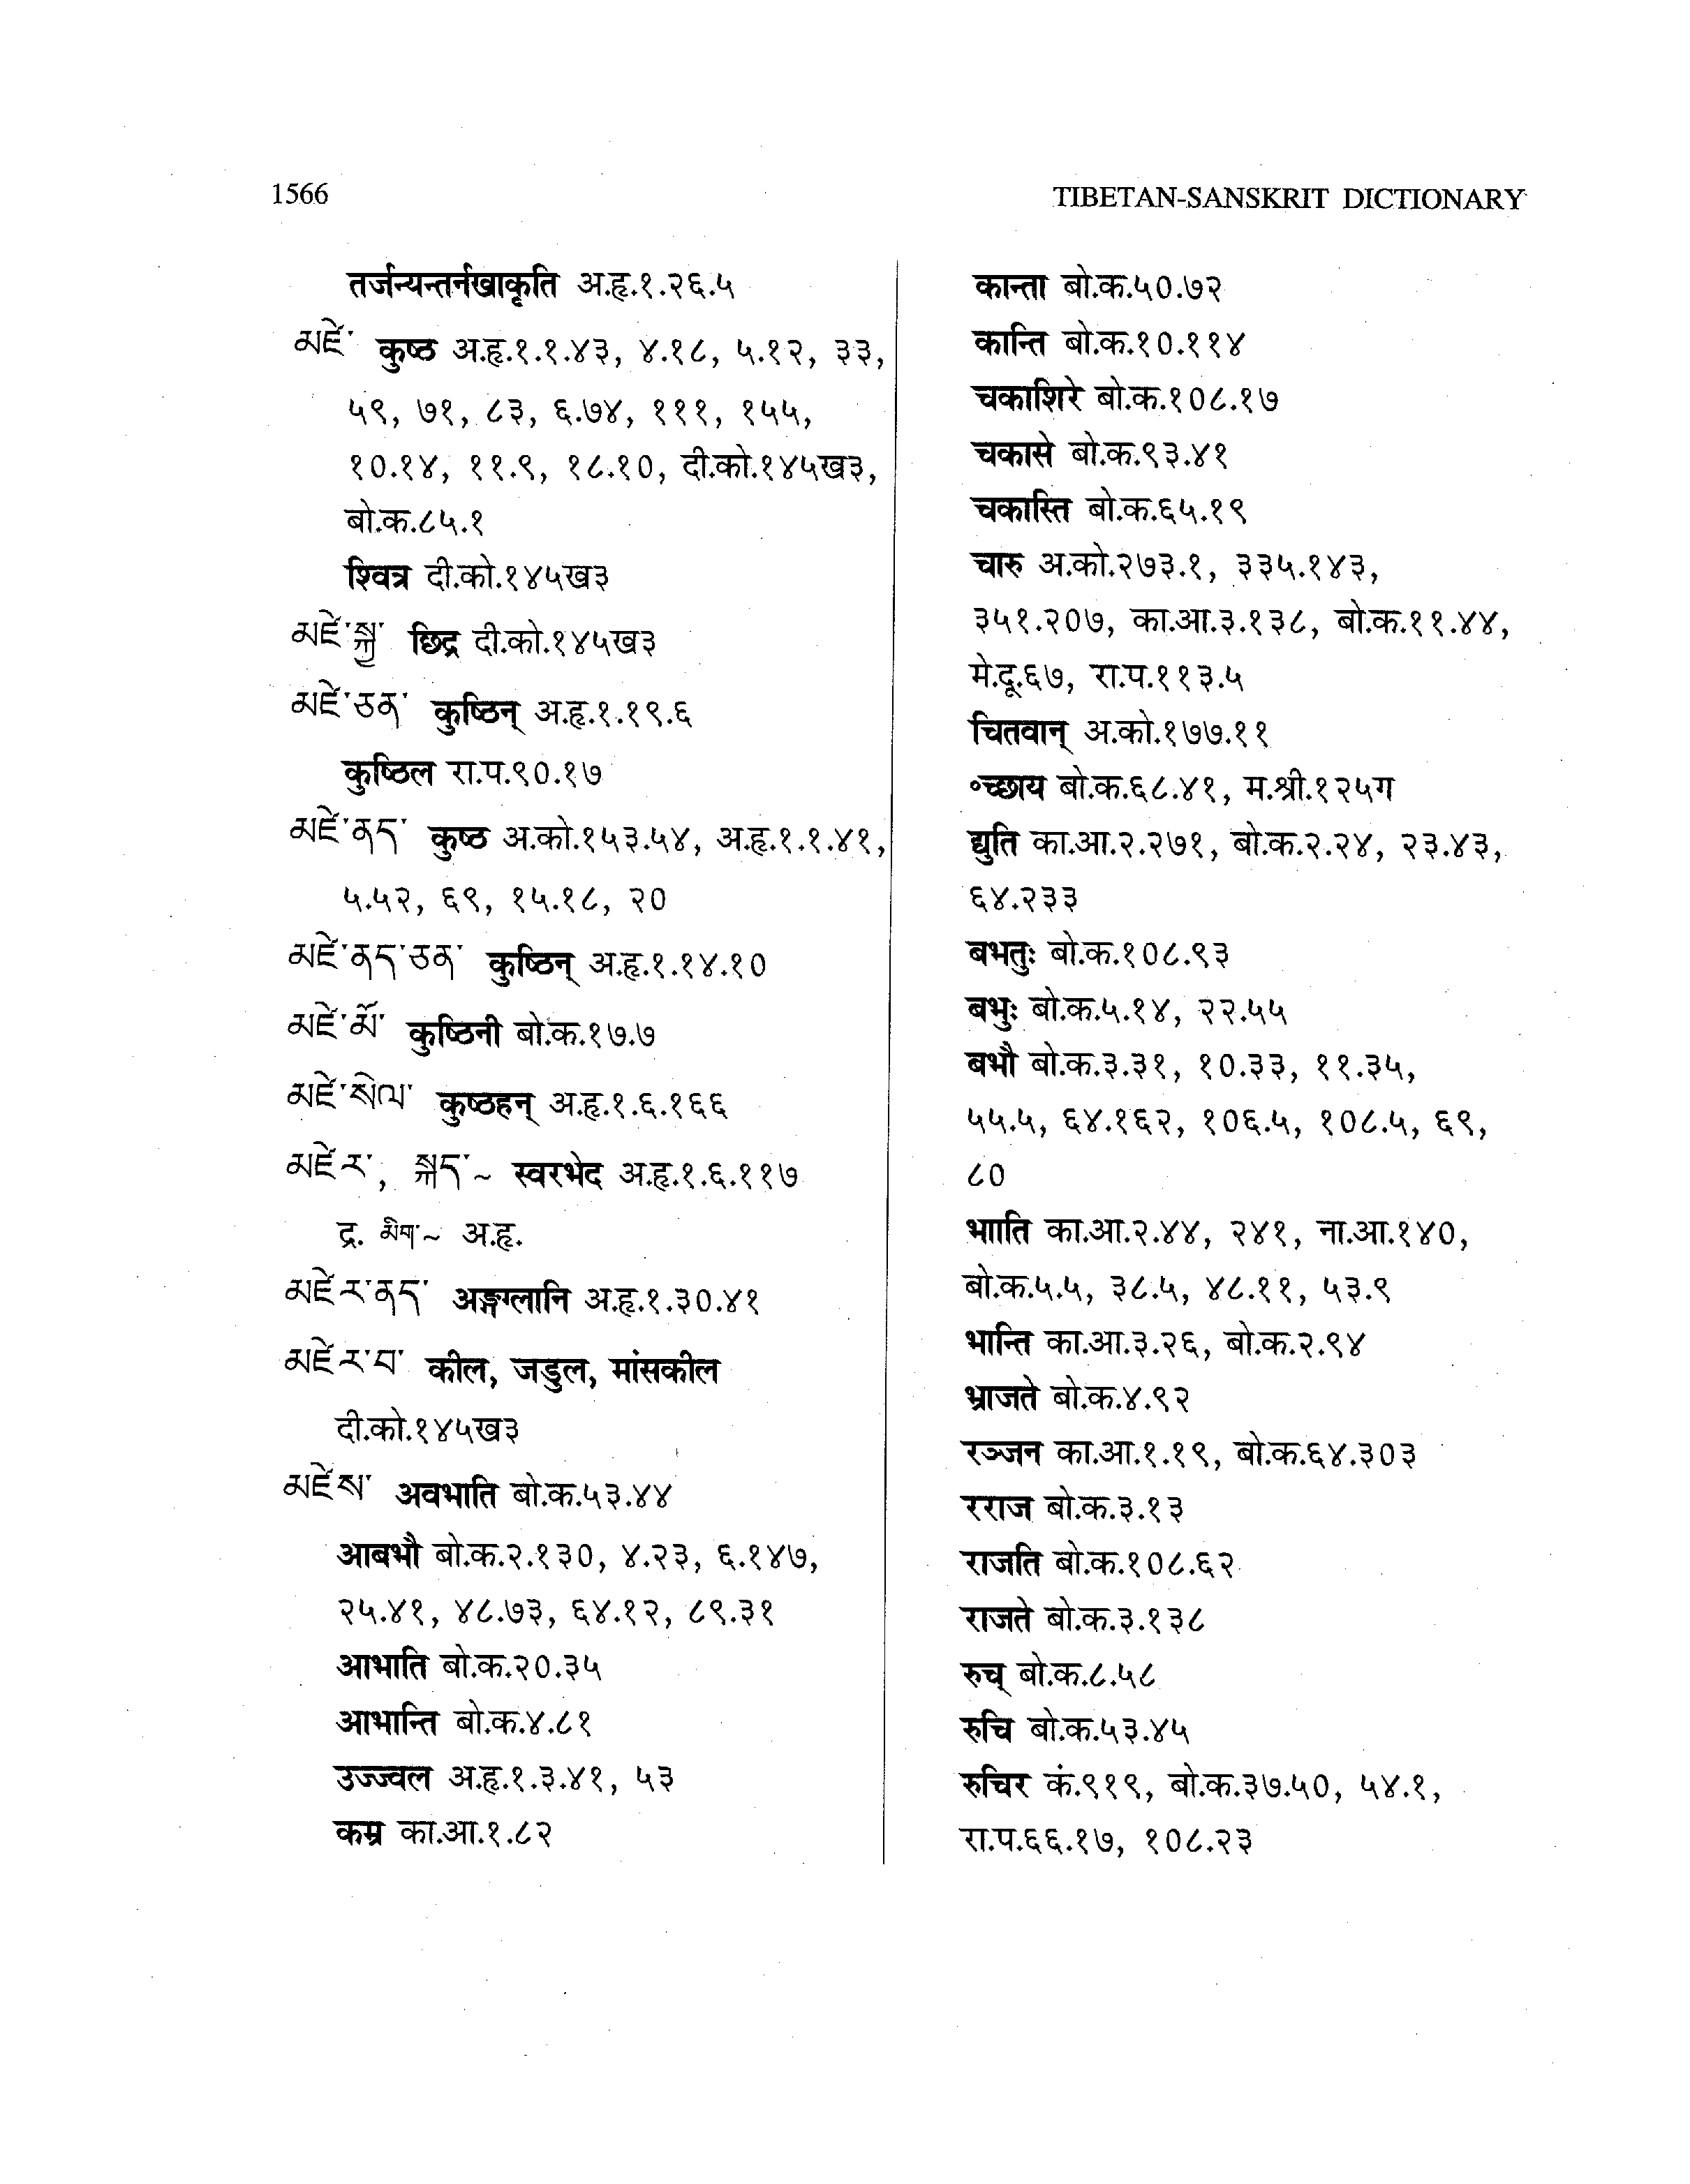 1566
TIBETAN-SANSKRIT DICTIONARY
तर्जन्यन्तर्नखाकृति अ.हृ.१.२६.५
མཛེ་ कुष्ठ अ.हृ.१.१.४३, ४.१८, ५.१२, ३३,
५९, ७१, ८३, ६.७४, १११, १५५,
१०.१४, ११.९, १८.१०, दी.को.१४५ख३,
बो.क.८५.१
श्वित्र दी.को.१४५ख३
མཛེ་སྐྱ་ छिद्र दी.को.१४५ख३
མཛེ་ཅན་ कुष्ठिन् अ.हृ.१.१९.६
कुष्ठिल रा.प.९०.१७
མཛེ་ནད་ कुष्ठ अ.को.१५३.५४, अ.हृ.१.१.४१,
५.५२, ६९, १५.१८, २०
མཛེ་ནད་ཅན་ कुष्ठिन् अ.हृ.१.१४.१०
མཛེ་མོ་ कुष्ठिनी बो.क.१७.७
མཛེ་སེལ་ कुष्ठहन् अ.हृ.१.६.१६६
མཛེར་, སྐད་~ स्वरभेद अ.हृ.१.६.११७
द्र. མིག་~ अ.हृ.
མཛེར་ནད་ अङ्गग्लानि अ.हृ.१.३०.४१
མཛེར་པ་ कील, जडुल, मांसकील
दी.को.१४५ख३
མཛེས་ अवभाति बो.क.५३.४४
आबभौ बो.क.२.१३०, ४.२३, ६.१४७,
२५.४१, ४८.७३, ६४.१२, ८९.३१
आभाति बो.क.२०.३५
आभान्ति बो.क.४.८१
उज्ज्वल अ.हृ.१.३.४१, ५३
कम्र का.आ.१.८२
कान्ता बो.क.५०.७२
कान्ति बो.क.१०.११४
चकाशिरे बो.क.१०८.१७
चकासे बो.क.९३.४१
चकास्ति बो.क.६५.१९
चारु अ.को.२७३.१, ३३५.१४३,
३५१.२०७, का.आ.३.१३८, बो.क.११.४४,
मे.दू.६७, रा.प.११३.५
चितवान् अ.को.१७७.११
॰च्छाय बो.क.६८.४१, म.श्री.१२५ग
द्युति का.आ.२.२७१, बो.क.२.२४, २३.४३,
६४.२३३
बभतुः बो.क.१०८.९३
बभुः बो.क.५.१४, २२.५५
बभौ बो.क.३.३१, १०.३३, ११.३५,
५५.५, ६४.१६२, १०६.५, १०८.५, ६९,
८०
भाति का.आ.२.४४, २४१, ना.आ.१४०,
बो.क.५.५, ३८.५, ४८.११, ५३.९
भान्ति का.आ.३.२६, बो.क.२.९४
भ्राजते बो.क.४.९२
रञ्जन का.आ.१.१९, बो.क.६४.३०३
रराज बो.क.३.१३
राजति बो.क.१०८.६२
राजते बो.क.३.१३८
रुच् बो.क.८.५८
रुचि बो.क.५३.४५
रुचिर कं.९१९, बो.क.३७.५०, ५४.१,
रा.प.६६.१७, १०८.२३